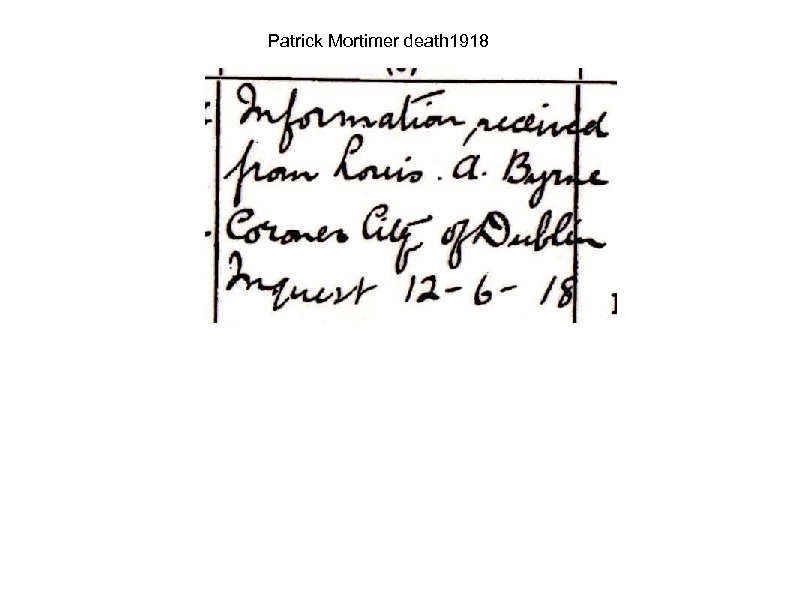 Patrick Mortimer death1918
Information received
from Louis. A. Byrne
Coroner City of Dublin
Inquest 12-6-18